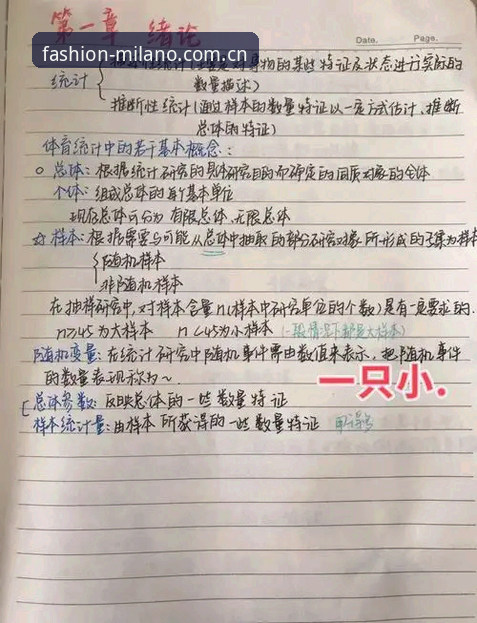 第一章 绪论
Date. Page.
fashion-milano.com.cn
事物的某些特征及状态进行实际的
统计
数量描述)
推断性统计(通过样本的数量特征以一定方式估计、推断
总体的特征)
体育统计中的若干基本概念:
总体:根据统计研究的具体研究目的而确定的同质对象的全体
个体:组成总体的每个基本单位
现存总体可分为 有限总体、无限总体
☆样本:根据需要与可能从总体中抽取的部分研究对象所形成的子集为样本
随机样本
非随机样本
在抽样研究中,对样本含量n(样本中研究单位的个数)是有一定要求的.
n≥45为大样本 n<45为小样本 (一般情况下都是大样本)
随机变量:在统计研究中随机事件需由数值来表示,把随机事件
的数量表现称为~
一只小.
总体参数:反映总体的一些数量特征
样本统计量:由样本所获得的一些数量特征